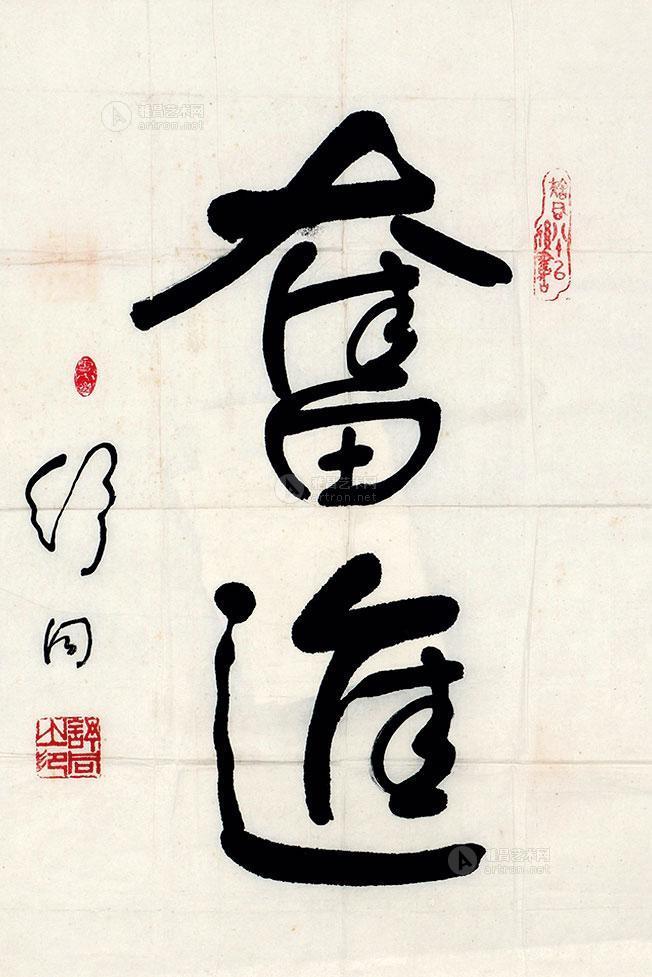 奮進
舒同
舒同之印
雅昌艺术网
artron.net
雅昌艺术网
artron.net
雅昌艺术网
artron.net